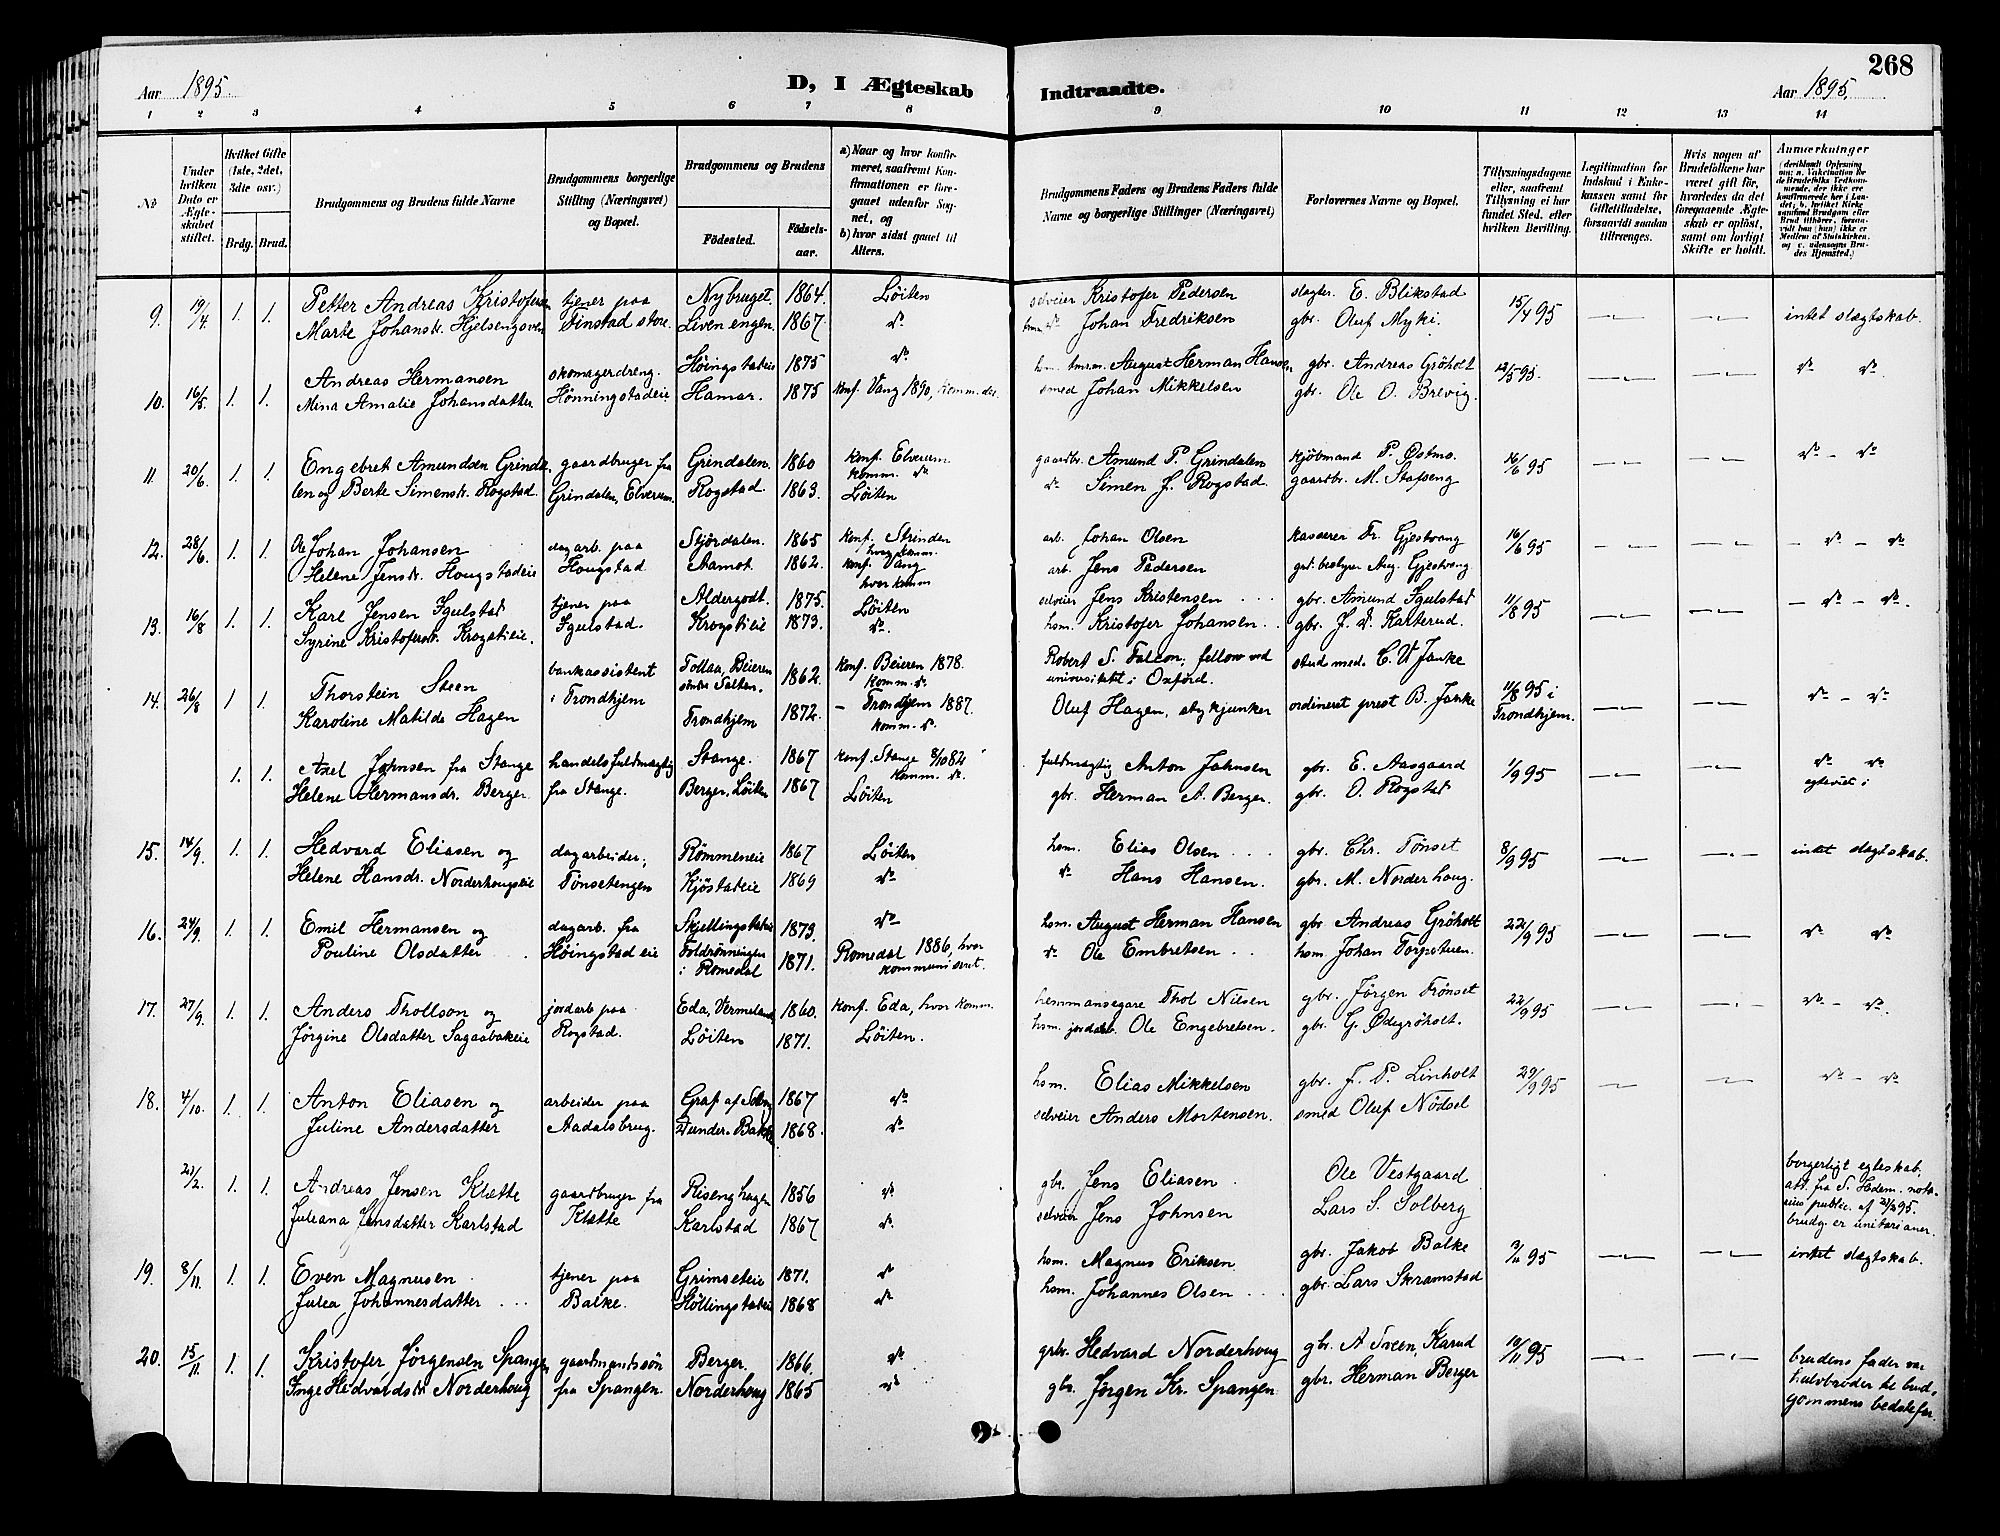 268
Aar 1895.
D, I Ægteskab Indtraadte.
Aar 1895.
1 2 3 4 5 6 7 8 9 10 11 12 13 14
No
Under hvilken Dato er Ægteskabet stiftet.
Hvilket Gifte (1ste, 2det, 3die osv.)
Brdg. Brud.
Brudgommens og Brudens fulde Navne
Brudgommens borgerlige Stilling (Næringsvei) og Bopæl.
Brudgommens og Brudens
Födested. Födselsaar.
a) Naar og hvor konfirmeret, saafremt Konfirmationen er foregaaet udenfor Sognet, og
b) hvor sidst gaaet til Alters.
Brudgommens Faders og Brudens Faders fulde Navne og borgerlige Stillinger (Næringsvei)
Forlovernes Navne og Bopæl.
Tillysningsdagene eller, saafremt Tillysning ei har fundet Sted, efter hvilken Bevilling.
Legitimation for Indskud i Enkekassen samt for Giftetilladelse, forsaavidt saadan tiltrænges.
Hvis nogen af Brudefolkene har været gift før, hvorledes da det foregaaende Ægteskab er opløst, samt om lovligt Skifte er holdt.
Anmærkninger
9. 19/4. 1. 1. Petter Andreas Kristofersen tjener paa Nybruget. 1864. Løiten selveier Kristofer Pedersen slagter. E. Blikstad 15/4 95 intet slægtskab.
Marte Johansdr. Hjelsengsveen Finstad store Liven engen 1867 do. Johan Fredriksen gbr. Oluf Myki.
10. 16/5. 1. 1. Andreas Hermansen skomagerdreng. Høingstadeie 1875 do. August Herman Hansen gbr. Andreas Grøholt 12/5 95. do. do.
Mina Amalie Johansdatter Hønningstadeie Hamar. 1875 konf. Vang 1890, komm. do. smed Johan Mikkelsen gbr. Ole O. Brevig.
11. 20/6. 1. 1. Engebret Amundsen Grinda- gaardbruger fra Grindalen. 1860 konf. Elverum. komm. do. gaardbr. Amund P. Grindalen kjøbmand P. Østmo. 16/6 95 do. - do.
len og Berte Simensdr. Rogstad. Grindalen, Elverum. Rogstad. 1863. Løiten do. Simen J. Rogstad. gaardbr. M. Stafseng
12. 28/6. 1. 1. Ole Johan Johansen dagarb. paa Stjørdalen. 1865 konf. Strinden hvor komm. arb. Johan Olsen kasserer Fr. Gjestvang 16/6 95 - do. - do.
Helene Jensdr. Hougstadeie Hougstad Aamot. 1862. konf. Vang hvor komm arb. Jens Pedersen Aug. Gjestvang
13. 16/8 1. 1. Karl Jensen Igulstad tjener paa Aldergodt. 1875. Løiten selveier Jens Kristensen gbr. Amund Igulstad 11/8 95 - do. - do.
Syrine Kristofersdr. Krogstieie. Igulstad. Krogstieie 1873. do. hsm. Kristofer Johansen gbr. J. Karterud.
14. 26/8 1 1 Thorstein Steen bankassistent Tollaa, Beieren Salten. 1862. konf. Beieren 1878. komm. do. Robert S. Falcon, fellow ved universitetet i Oxford. stud med. C. W Janke 11/8 95 i Trondhjem. do - do
Karoline Matilde Hagen i Trondhjem Trondhjem 1872. - Trondhjem 1887. komm. do. Oluf Hagen, stykjunker ordineret prest B. Janke
1. 1. Axel Johnsen fra Stange handelsfuldmægtig Stange. 1867 konf. Stange 8/10 82 komm. do. fuldmægtig Anton Johnsen gbr. E. Aasgaard 1/9 95 do. do.
Helene Hermansdr. Berger fra Stange. Berger, Løiten 1867 Løiten gbr. Herman A. Berger. gbr. O. Rogstad
15. 14/9. 1. 1. Hedvard Eliasen og dagarbeider, Rømmeneie 1867 Løiten hsm. Elias Olsen gbr. Chr. Tønset 8/9 95 intet slægtskab.
Helene Hansdr. Norderhougseie Tønsetengen Kjøstadeie 1869 do. do. Hans Hansen. gbr. M. Norderhoug.
16. 24/9. 1. 1. Emil Hermansen og dagarb. fra Skjellingstadeie 1873. do hsm. August Herman Hansen gbr Andreas Grøholt 22/9 95 do. do.
Pouline Olsdatter Høingstadeie Foldrønningen i Romedal 1871. Romedal 1886, hvor kommuniseret. do. Ole Embretsen hsm. Johan Torpetuen.
17. 27/9. 1. 1. Anders Thollson og jordarb paa Eda, Vermeland 1860. konf. Eda, hvor komm. hemmansegare Thol Nilsen gbr. Jørgen Trønset 22/9 95 do - do.
Jørgine Olsdatter Sagaabakeie Rogstad. Løiten 1871. Løiten. hsm. jordarb. Ole Engebretsen. gbr. G. Ødegrøholt.
18. 4/10. 1. 1. Anton Eliasen og arbeider paa Graf af Solm 1867 do hsm. Elias Mikkelsen gbr. J. P. Linholt 29/9 95 do - do
Juline Andersdatter Aadalsbrug. Dunder-Bakke 1868. do selveier Anders Mortensen. smed Oluf Nødsel
21/2. 1. 1. Andreas Jensen Klætte gaardbruger fra Risenghagen 1856 do. gbr. Jens Eliasen Ole Vestgaard borgerligt egteskab. att. fra S. Hedem. nota-
Juliana Jensdatter Karlstad Klætte Karlstad 1867 do. selveier Jens Johnsen Lars S. Solberg rius public. af 21/2 95. brudg. er unitarianer.
19. 8/11. 1. 1. Even Magnusen tjener paa Grimseteie 1871. do hsm. Magnus Eriksen gbr. Jakob Balke 3/11 95 intet slægtskab.
Julea Johannesdatter Balke. Høllingstadeie 1868 do hsm. Johannes Olsen gbr. Lars Skramstad
20. 15/11. 1. 1. Kristofer Jørgensen Spangen gaardmandssøn Berger. 1866. do gbr. Hedvard Norderhoug gbr. A Tveen, Karud 10/11 95 brudens fader var
Inge Hedvardsdr. Norderhoug fra Spangen. Norderhoug 1865 do gbr. Jørgen Kr. Spangen gbr. Herman Berger halvbroder til brud-
gommens bedstefar.